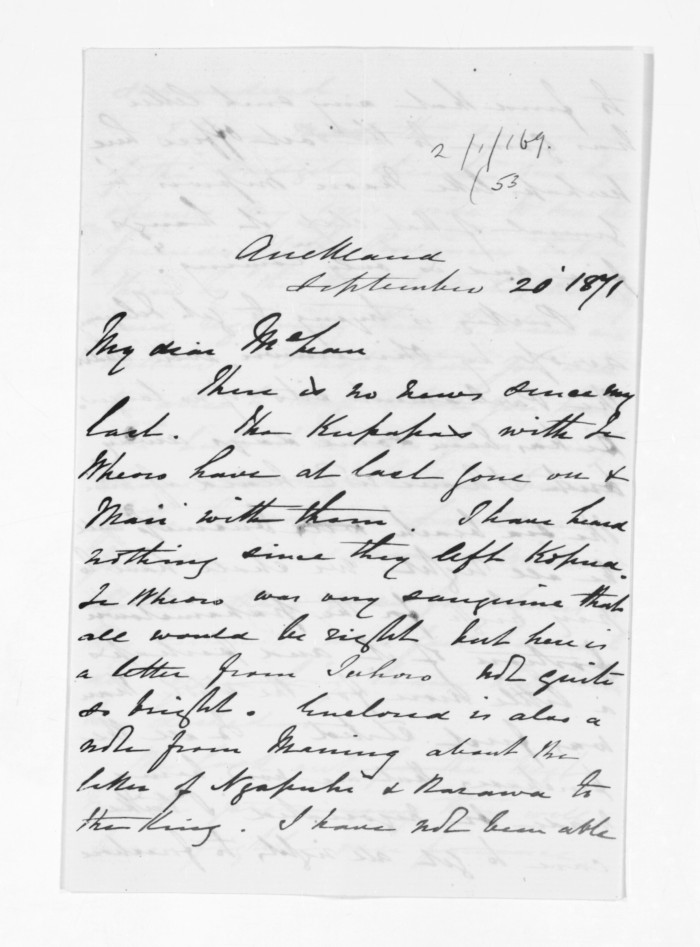 2/1/169.
(53
Auckland
September 20 1871
My dear McLean
There is no news since my
last. The Kupapas with Te
Wheoro have at last gone on &
Mair with them. I have heard
nothing since they left Kopua.
Te Wheoro was very sanguine that
all would be right but here is
a letter from not quite
so bright. Enclosed is also a
note from Maning about the
letter of Ngapuhi & Rarawa to
the King. I have not been able